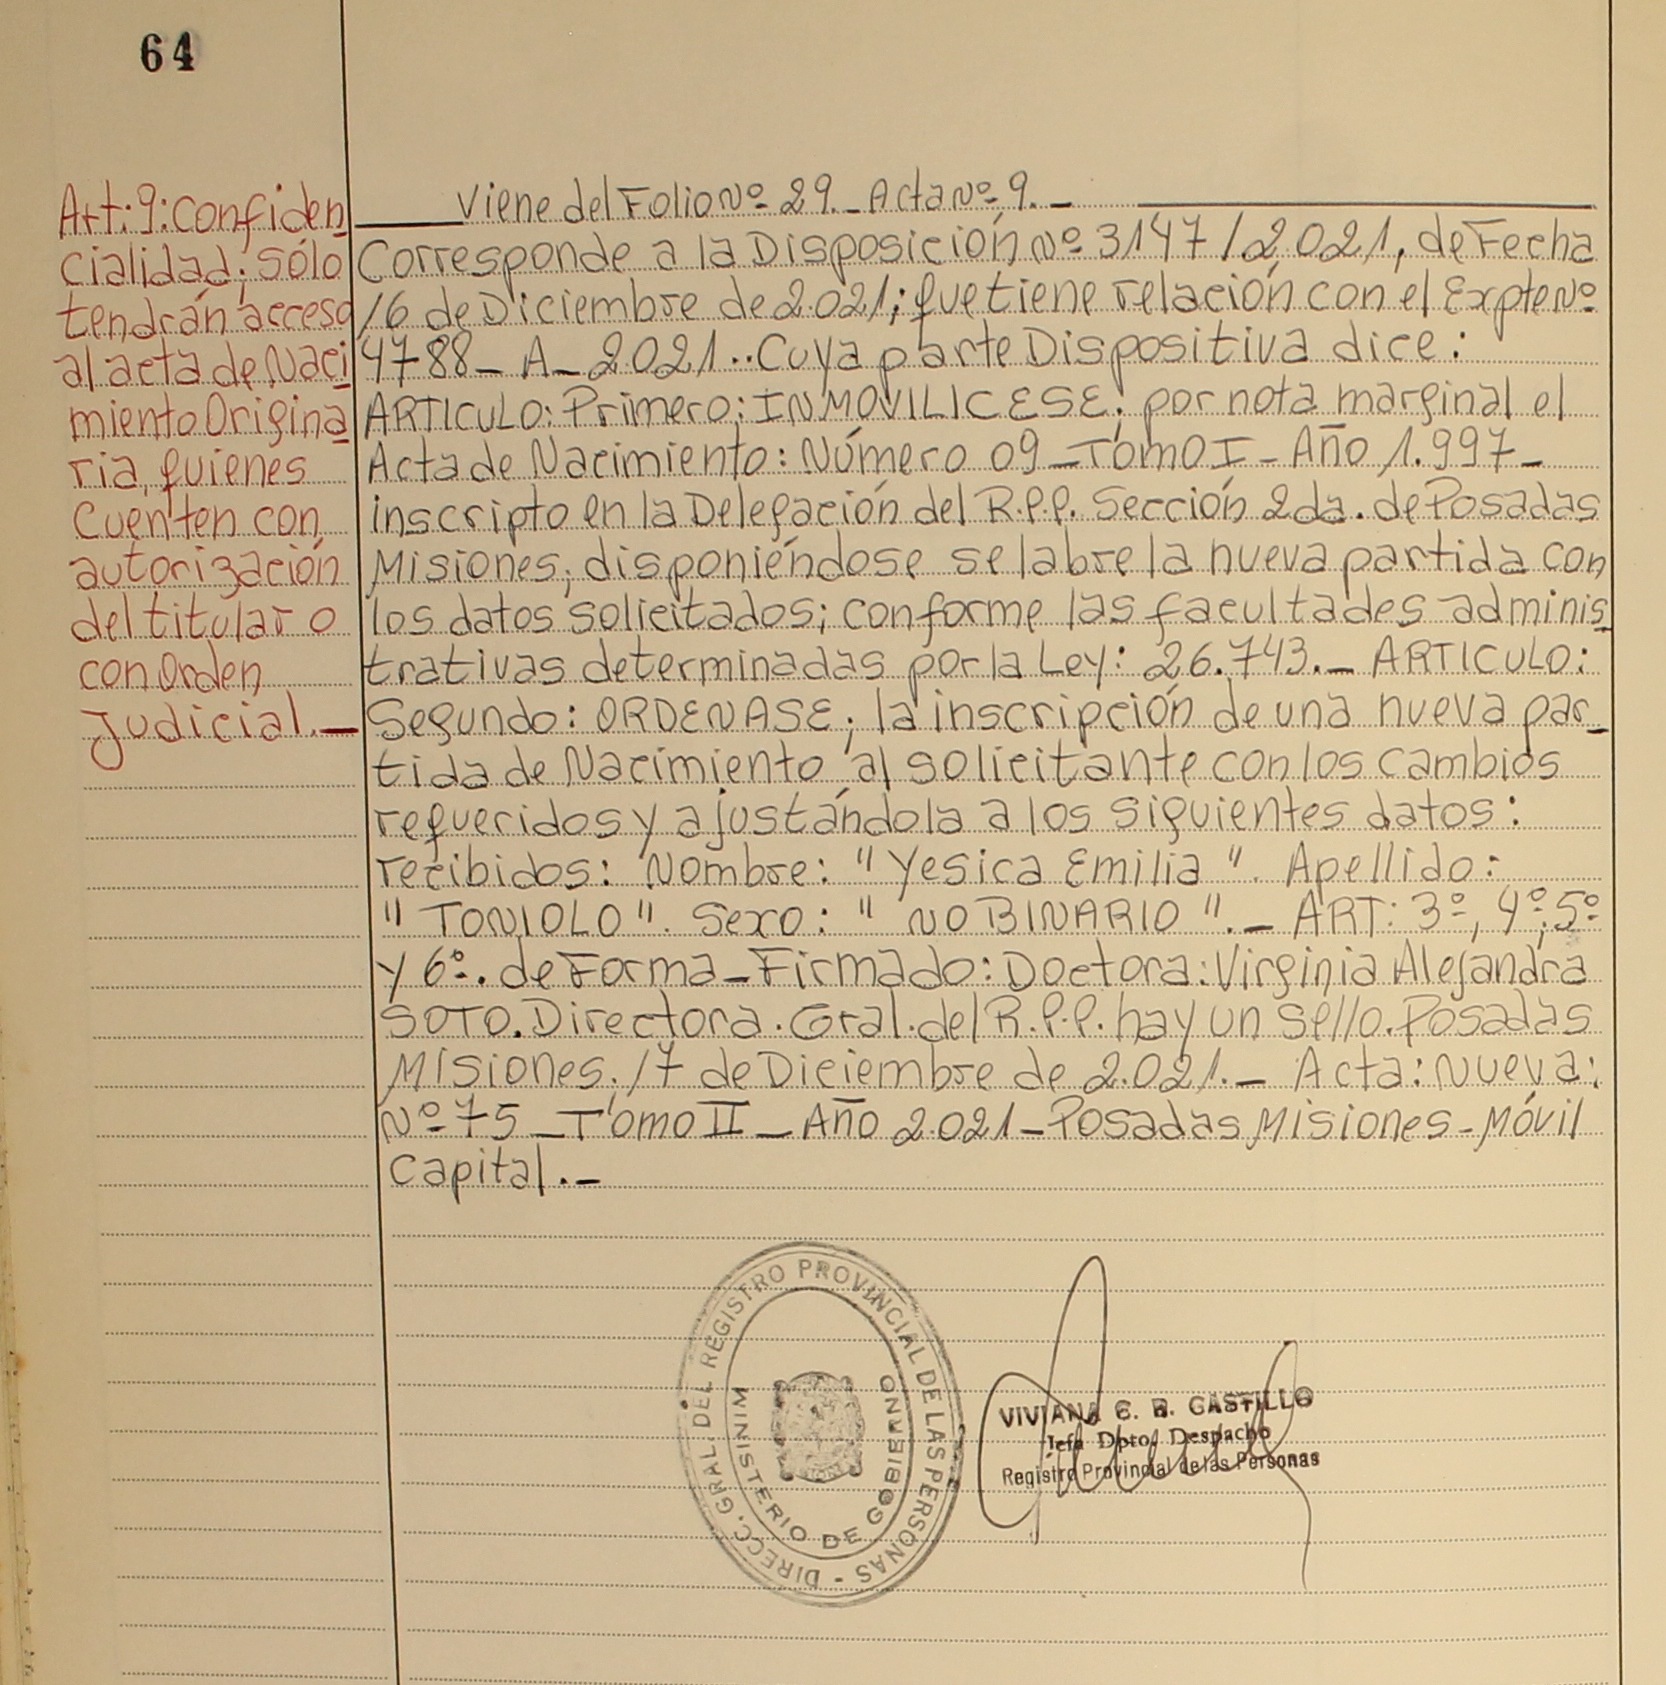 64
Art: 9: confiden
cialidad; sólo
tendrán acceso
al acta de Naci
miento Origina
ria, quienes
Cuenten con
autorización
del titular o
con Orden
Judicial._
Viene del Folio Nº 29._ Acta Nº 9._
Corresponde a la Disposición Nº 3147/2.021, de Fecha
16 de Diciembre de 2.021; que tiene relación con el Expte Nº
4788_ A_ 2.021.. Cuya parte Dispositiva dice:
ARTICULO: Primero: INMOVILICESE; por nota marginal el
Acta de Nacimiento: Número 09_Tomo I_ Año 1.997_
inscripto en la Delegación del R.P.P. Sección 2da. de Posadas
Misiones; disponiéndose se labre la nueva partida con
los datos solicitados; conforme las facultades adminis
trativas determinadas por la Ley: 26.743._ ARTICULO:
Segundo: ORDENASE; la inscripción de una nueva par_
tida de Nacimiento al solicitante con los cambios
requeridos y ajustándola a los siguientes datos:
recibidos: Nombre: "Yesica Emilia". Apellido:
"TONIOLO". Sexo: "NO BINARIO"._ ART: 3º, 4º, 5º
y 6º. de Forma_Firmado: Doctora: Virginia Alejandra
SOTO. Directora. Gral. del R.P.P. hay un sello. Posadas
Misiones. 17 de Diciembre de 2.021._ Acta: Nueva:
Nº 75_Tomo II_ Año 2.021_Posadas Misiones_Móvil
Capital._
DIRECC. GRAL. DEL REGISTRO PROVINCIAL DE LAS PERSONAS -
MINISTERIO DE GOBIERNO
VIVIANA C. R. CASTILLO
Jefa Dpto. Despacho
Registro Provincial de las Personas